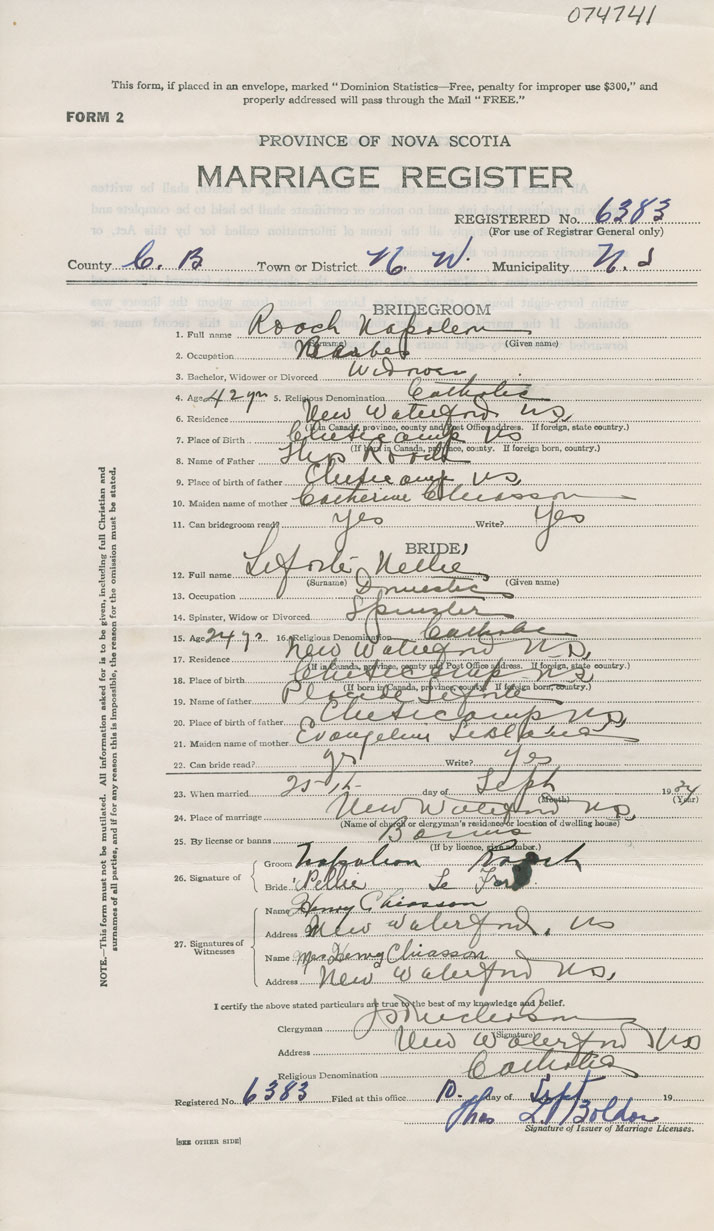 074741
This form, if placed in an envelope, marked "Dominion Statistics—Free, penalty for improper use $300," and
properly addressed will pass through the Mail "FREE."
FORM 2
PROVINCE OF NOVA SCOTIA
MARRIAGE REGISTER
REGISTERED No. 6383
(For use of Registrar General only)
County C. B Town or District N. W. Municipality N. S
BRIDEGROOM
1. Full name Roach Napoleon
(Surname) (Given name)
2. Occupation Barber
3. Bachelor, Widower or Divorced Widower
4. Age 42 yrs 5. Religious Denomination Catholic
6. Residence New Waterford NS,
(If in Canada, province, county and Post Office address. If foreign, state country.)
7. Place of Birth Cheticamp NS
(If born in Canada, province, county. If foreign born, country.)
8. Name of Father Roach
9. Place of birth of father Cheticamp NS,
10. Maiden name of mother Catherine Chiasson
11. Can bridegroom read? Yes Write? Yes
BRIDE
12. Full name LeForte Nellie
(Surname) (Given name)
13. Occupation Domestic
14. Spinster, Widow or Divorced Spinster
15. Age 24 yrs 16. Religious Denomination Catholic
17. Residence New Waterford NS,
(If in Canada, province, county and Post Office address. If foreign, state country.)
18. Place of birth Cheticamp NS,
(If born in Canada, province, county. If foreign born, country.)
19. Name of father Placide LeForte
20. Place of birth of father Cheticamp NS,
21. Maiden name of mother Evangeline LeBlanc
22. Can bride read? yes Write? yes
23. When married 25th day of Sept 1934
(Month) (Year)
24. Place of marriage New Waterford NS,
(Name of church or clergyman's residence or location of dwelling house)
25. By license or banns Banns
(If by licence, give number.)
26. Signature of
Groom Napoleon Roach
Bride Nellie Le Fort
27. Signatures of Witnesses
Name Henry Chiasson
Address New Waterford, NS
Name Mrs. Henry Chiasson
Address New Waterford NS,
I certify the above stated particulars are true to the best of my knowledge and belief.
Clergyman
(Signature)
Address New Waterford NS
Religious Denomination Catholic
Registered No. 6383 Filed at this office 10 day of Sept 19
Thos L. Boldon
Signature of Issuer of Marriage Licenses.
[SEE OTHER SIDE]
NOTE.—This form must not be mutilated. All information asked for is to be given, including full Christian and
surnames of all parties, and if for any reason this is impossible, the reason for the omission must be stated.